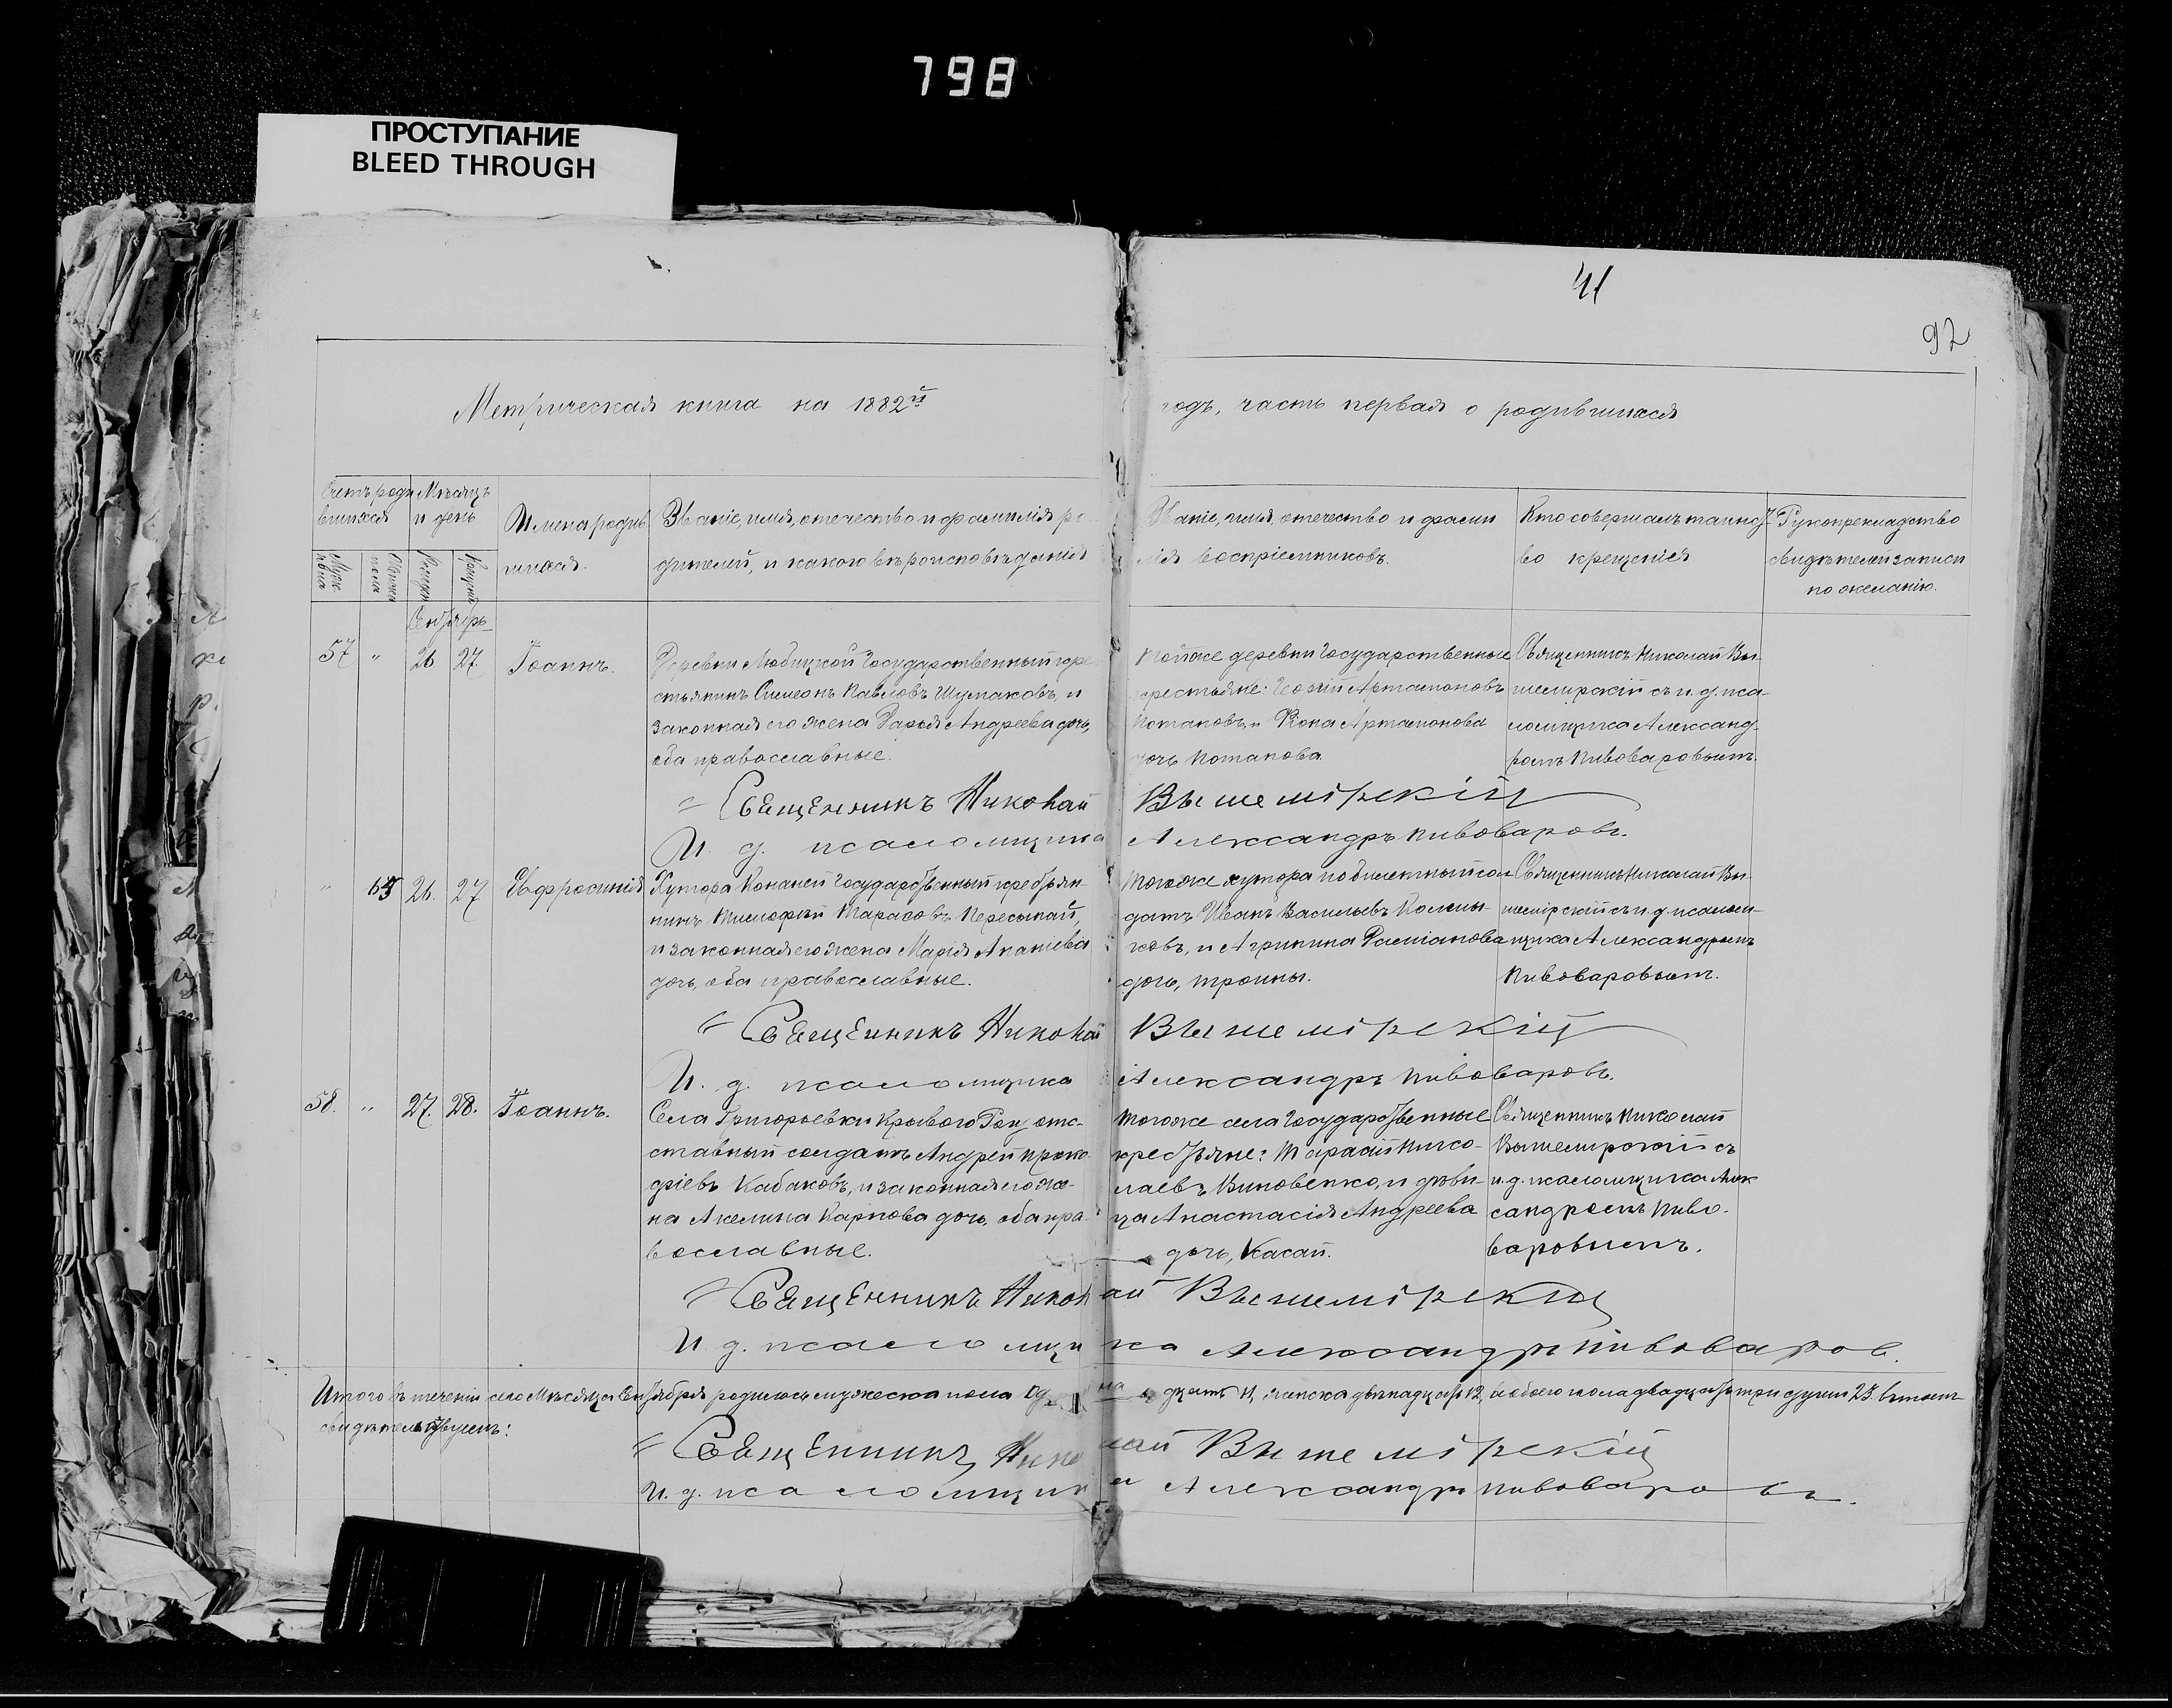 798
ПРОСТУПАНИЕ
BLEED THROUGH
41
92
Метрическая книга на 1882й
годъ, часть первая о родившихся
Счетъ роди
вшихся
Мѣсяцъ
и день
Имена родив
шихся.
Званіе, имя, отечество и фамилія ро
дителей, и какого вѣроисповѣданія
Званіе, имя, отечество и фами
лія воспріемниковъ.
Кто совершалъ таинст
во крещенія
Рукоприкладство
свидѣтелей записи
по желанію.
Сентябрь
57 " 26 27. Іоаннъ.
Деревни Любицкой Государственный кре
стьянинъ Симеонъ Павловъ Шумаковъ, и
законная его жена Дарья Андреева дочь,
оба православные.
Тойже деревни Государственные
крестьяне: Георгій Артамоновъ
Потаповъ, и Артамонова
дочь Потапова.
Священникъ Николай Вы-
шемірскій съ и. д. пса-
ломщика Александ-
ромъ Пивоваровымъ.
Священникъ Николай Вышемірскій
И. д. псаломщика Александръ Пивоваровъ.
" 65 26. 27 Евфросинія
Хутора Копаней Государственный крестьян-
нинъ Тимофей Тарасовъ Пересыпай,
и законная его жена Марія Ананіева
дочь, оба православные.
Тогоже хутора по билетный сол
датъ Иванъ Васильевъ
и Агрипина Даміанова
дочь,
Священникъ Николай Вы-
шемірскій съ и. д. псалом-
щика Александромъ
Пивоваровымъ.
Священникъ Николай Вышемірскій
И. д. псаломщика Александръ Пивоваровъ.
58. " 27. 28. Іоаннъ.
Села Григорьевки Кривого Рогу отс-
ставный солдатъ Андрей Проко-
фіевъ Кабаковъ, и законная его же-
на Акелина Карпова дочь, оба пра-
вославные.
Тогоже села Государственные
крестьяне: Тарасій Нико-
лаевъ Виновенко, и дѣви-
ца Анастасія Андреева
дочь, Касай.
Священникъ Николай
Вышемірскій съ
и. д. псаломщика Алек
сандромъ Пиво-
варовымъ.
Священникъ Николай Вышемірскій
И. д. псаломщика Александръ Пивоваров.
Итого въ теченіи сего Мѣсяца Сентября родилось мужеска пола одинадцать 11, женска двѣнадцать 12, и обоего пола двадцать три души 23. въ томъ
свидѣтельствуемъ:
Священникъ Николай Вышемірскій
И. д. псаломщика Александръ Пивоваровъ.